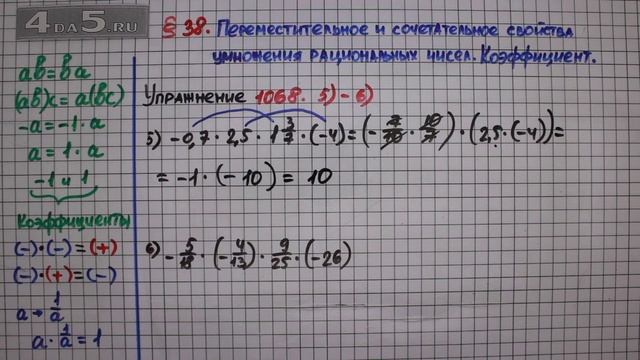 4DA5.RU
§ 38. Переместительное и сочетательное свойства
умножения рациональных чисел. Коэффициент.
ab = ba
(ab)c = a(bc)
-a = -1 · a
a = 1 · a
-1 и 1
Коэффициенты
(-)·(-) = (+)
(-)·(+) = (-)
a → 1/a
a · 1/a = 1
Упражнение 1068. 5) - 6)
5) -0,7 · 2,5 · 1 3/7 · (-4) = (-7/10 · 10/7) · (2,5 · (-4)) =
= -1 · (-10) = 10
6) -5/18 · (-4/13) · 9/25 · (-26)